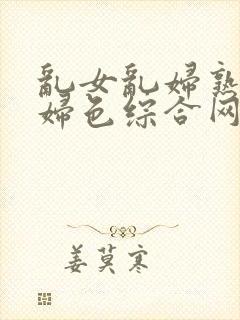 乱女乱婦熟
婦色综合网
姜莫寒